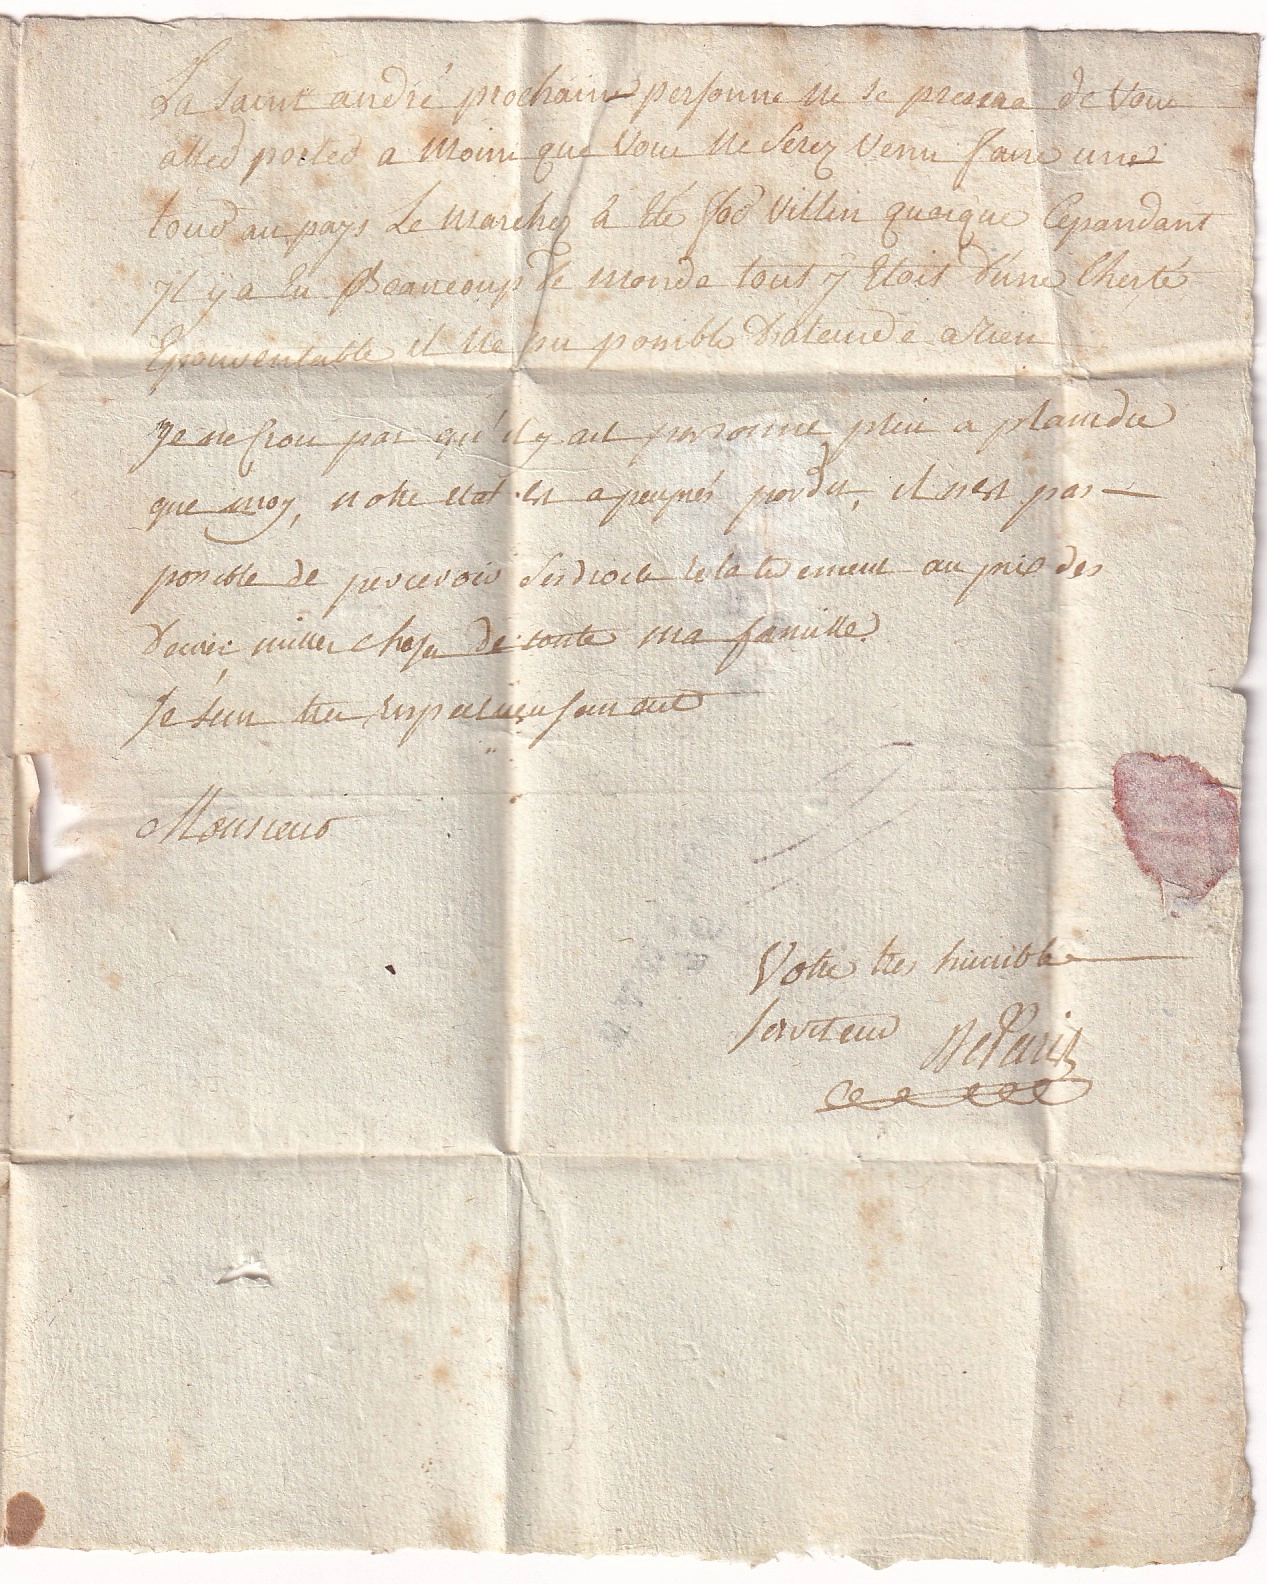 La saint andré prochain personne ne se presera de Vous
alled ported a Moins que Vous Ne serez Venu faire une
tour au pays Le Marchez à Eté fod Villin quoique Cepandant
yl y a Eu Beaucoup de Monde tout y Etoit d'une Cherté
Epouventable il Ne pu possible D'ateindre a Rien
Je ne Crois pas qu'il y ait personne plus a plaindre
que moy, notre etat est a peuprés perdu, il n'est pas
possible de percevoir ses droits relativement au prix des
Denrées milles choses de toute ma famille.
Je suis tres respectueusement
Monsieur
Votre tres humble
serviteur DeParis